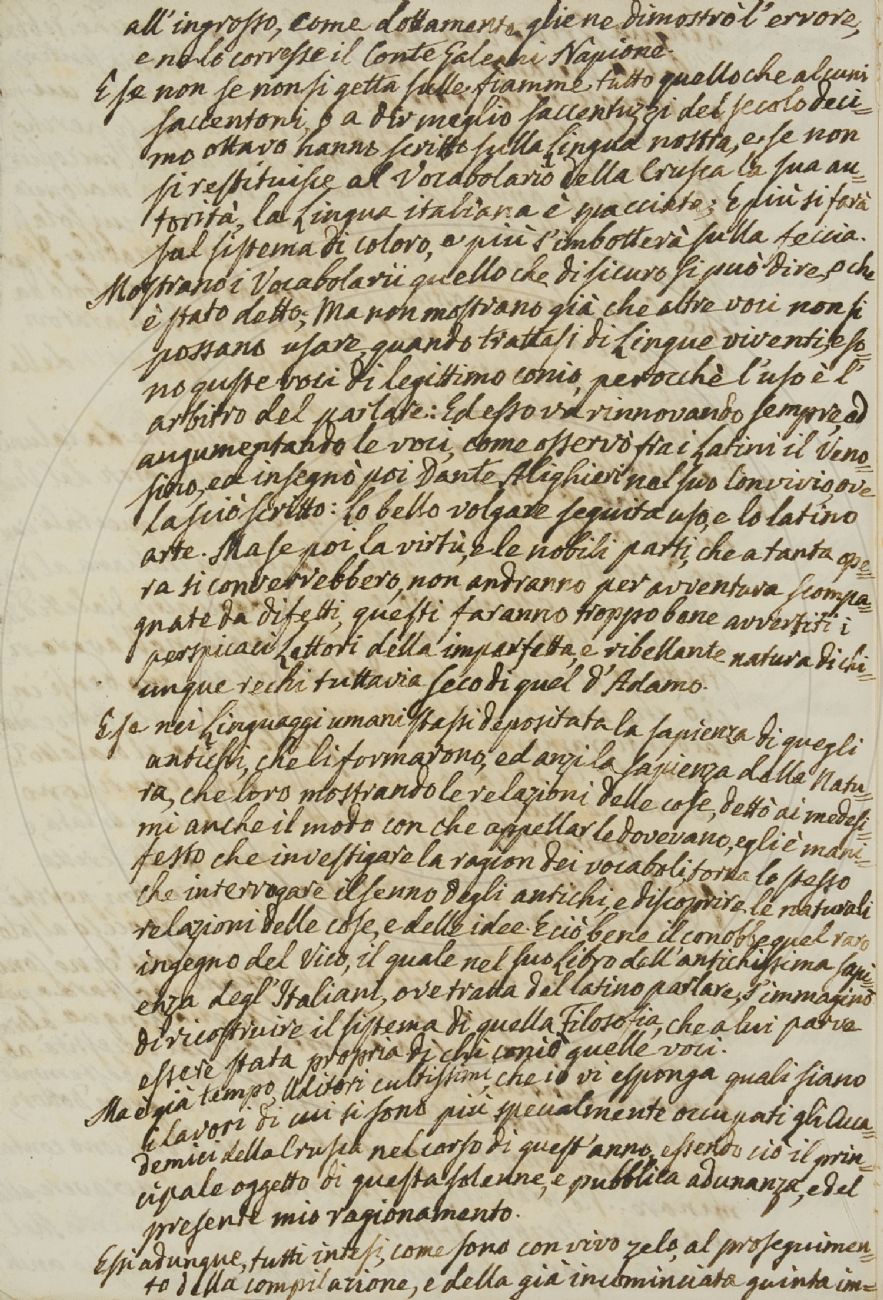 all'ingrosso, come dottamente gliene dimostrò l'errore,
e ne lo corresse il Conte Galeani Napione.
E se non se non si getta sulle fiamme tutto quello che alcuni
saccentoni, o a dir meglio saccentuzzi del secolo deci=
mo ottavo hanno scritto sulla Lingua nostra, e se non
si restituisce al Vocabolario della Crusca la sua au=
torità, la Lingua italiana è spacciata; E più si farà
sul sistema di coloro, e più s'imbotterà sulla feccia.
Mostrano i Vocabolarii quello che di sicuro si può dire, o che
è stato detto; Ma non mostrano già che altre voci non si
possano usare, quando trattasi di Lingue viventi, e so=
no queste voci di legittimo conio, perocchè l'uso è l'
arbitro del parlare: Ed esso va rinnovando sempre, ad
augumentando le voci, come osservò fra i Latini il Veno=
sino, ed insegnò poi Dante Alighieri nel suo Convivio, ove
lasciò scritto: Lo bello volgare seguita uso, e lo latino
arte. Ma se poi la virtù, e le nobili parti, che a tanta ope=
ra si converrebbero, non andranno per avventura scompa=
gnate da difetti, questi faranno troppo bene avvertiti i
perspicaci Lettori della imperfetta, e ribellante natura di chi=
unque rechi tuttavia seco di quel d'Adamo.
E se nei Linguaggi umani stassi depositata la sapienza di quegli
antichi, che li formarono, ed anzi la sapienza della Natu=
ra, che loro mostrando le relazioni delle cose, dettò ai medesi=
mi anche il modo con che appellar le dovevano, egli è mani=
festo che investigare la ragion dei vocaboli, torna lo stesso
che interrogare il senno degli antichi, e discoprire le naturali
relazioni delle cose, e delle idee. E ciò bene il conobbe quel raro
ingegno del Vico, il quale nel suo Libro dell'antichissima sapi=
enza degl'Italiani, ove tratta del latino parlare, s'immaginò
di ricostruire il sistema di quella Filosofia, che a lui parve
essere stata propria di chi coniò quelle voci.
Ma è già tempo, Uditori cultissimi, che io vi esponga quali siano
i lavori di cui si sono più specialmente occupati gli Acca=
demici della Crusca nel corso di quest'anno, essendo ciò il prin=
cipale oggetto di questa solenne, e pubblica adunanza, e del
presente mio ragionamento.
Essi adunque, tutti intesi, come sono con vivo zelo, al proseguimen=
to della compilazione, e della già incominciata quinta im=